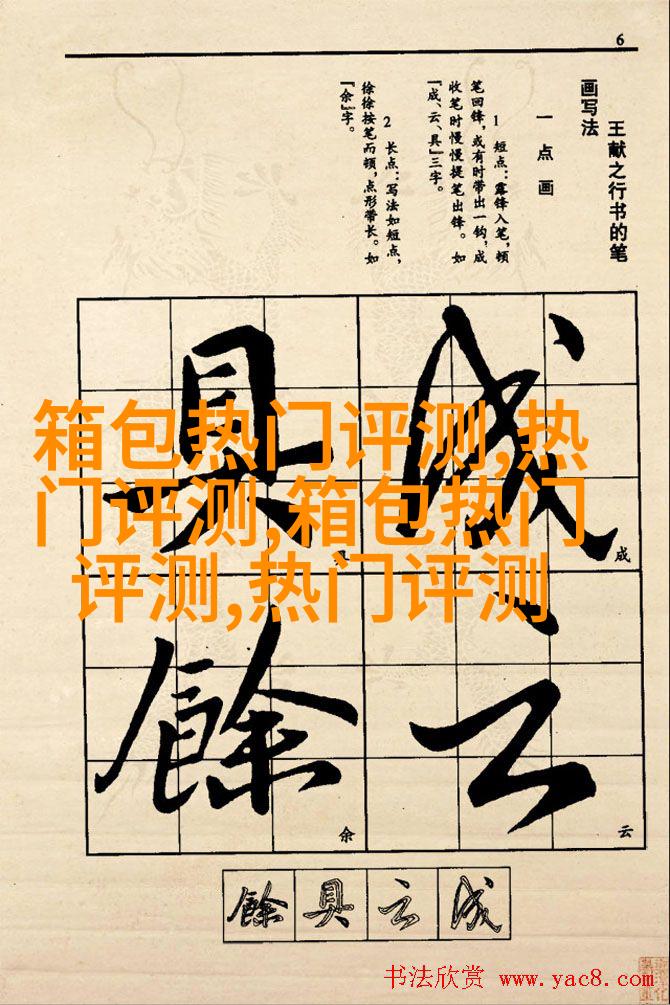 6
王献之行书的笔
画写法
一 点 画
1 短点：露锋入笔，顿
笔回锋，或有时带出一钩，成
收笔时慢慢提笔出锋。如
『成、云、具』三字。
2 长点：写法如短点，
徐徐按笔而顿，点形带长。如
『余』字。
箱包热门评测,热
门评测,箱包热门
评测,热门评测
成
具
云
餘
成
具
云
余
餘 具 云 成
书法欣赏 www.yac8.com